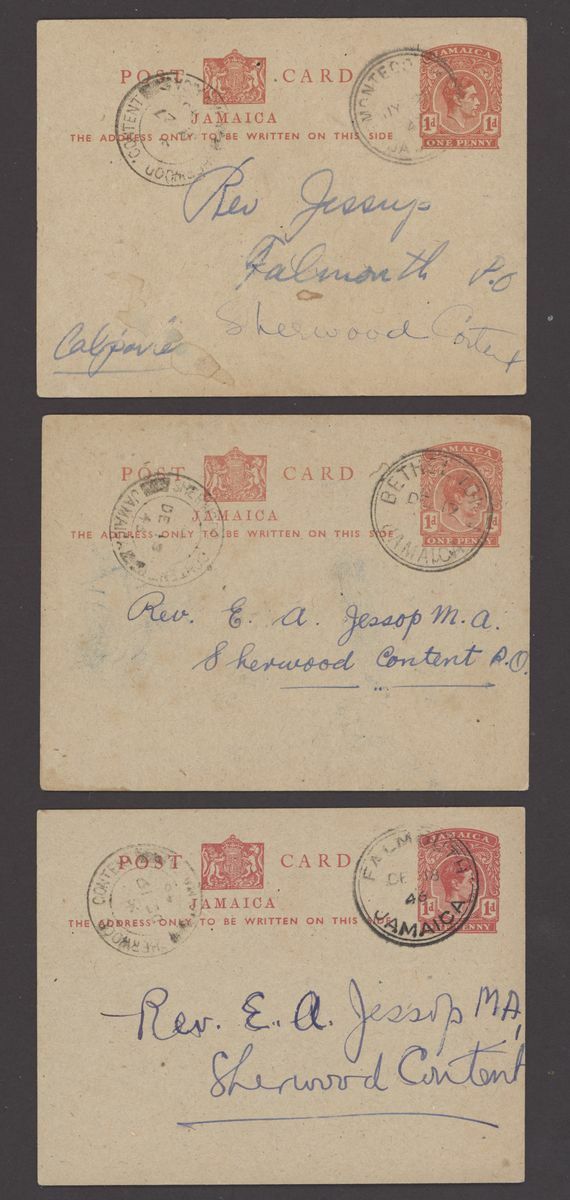 POST CARD
JAMAICA
THE ADDRESS ONLY TO BE WRITTEN ON THIS SIDE
JAMAICA
1d 1d
ONE PENNY
SHERWOOD CONTENT
MONTEGO
JY
JA
Rev Jessup
Falmouth P.O
Sherwood Content
POST CARD
JAMAICA
THE ADDRESS ONLY TO BE WRITTEN ON THIS SIDE
JAMAICA
1d 1d
ONE PENNY
CONTENT
JAMAICA
DE 9
BETHEL
DE
JAMAICA
Rev. E. A. Jessop M.A.
Sherwood Content P.O.
POST CARD
JAMAICA
THE ADDRESS ONLY TO BE WRITTEN ON THIS SIDE
JAMAICA
1d
PENNY
SHERWOOD CONTENT
FALMOUTH
DE 18
46
JAMAICA
Rev. E. A. Jessop MA,
Sherwood Content